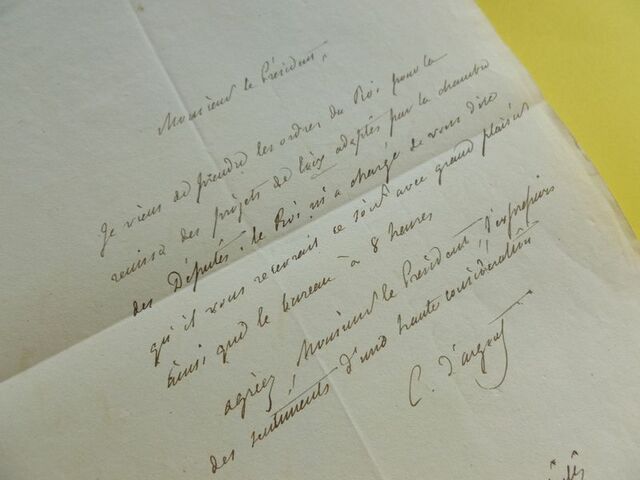 Monsieur le Président,
Je viens de prendre les ordres du Roi pour la
remise des projets de loix adoptés par la chambre
des Députés. le Roi m'a chargé de vous dire
qu'il vous recevrait ce soir avec grand plaisir
ainsi que le bureau à 8 heures
agréez Monsieur le Président l'expression
des sentiments d'une haute considération
C. d'argout